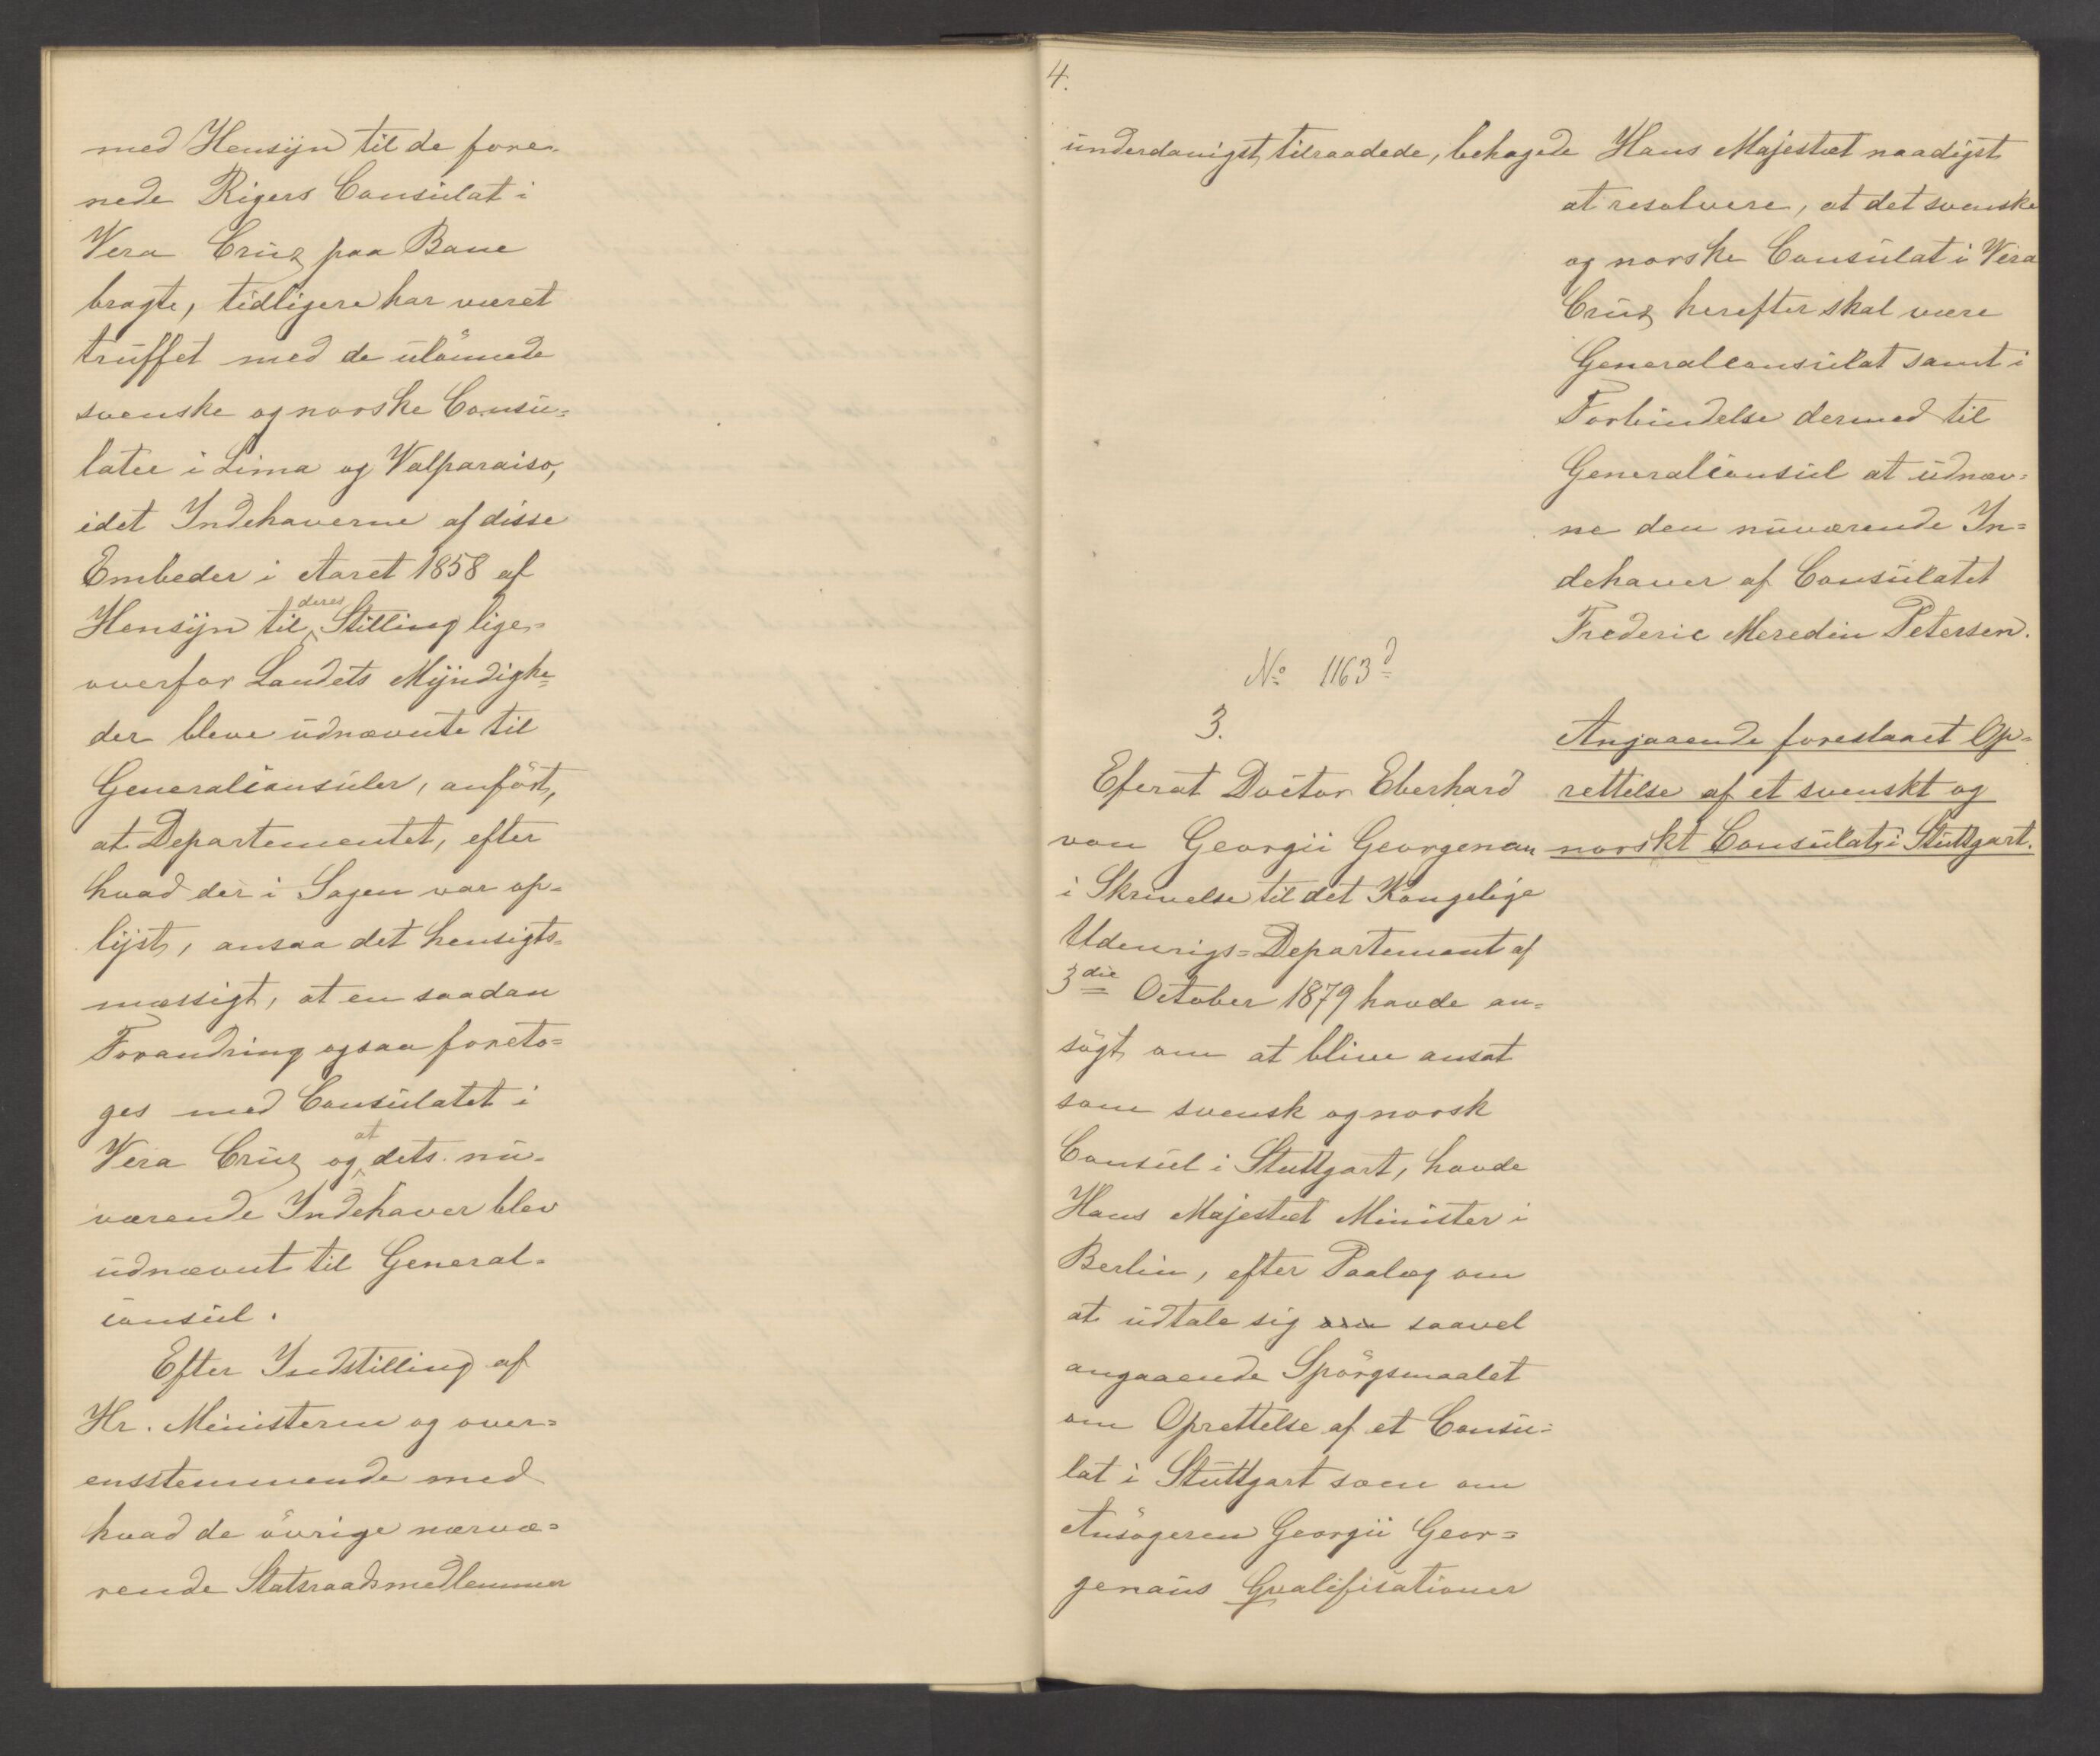 med Hensyn til de fore-
nede Rigers Consulat i
Vera Cruz paa Bane
bragte, tidligere har været
truffet med de ulönnede
svenske og norske Consu=
later i Lima og Valparaiso,
idet Indehaverne af disse
Embeder i Aaret 1858 af
Hensyn til deres Stilling lige-
overfor Landets Myndighe=
der bleve udnævnte til
Generalconsuler, anfört,
at Departementet, efter
hvad der i Sagen var op=
lyst, ansaa det hensigts=
mæssigt, at en saadan
Forandring ogsaa foreto=
ges med Consulatet i
Vera Cruz og at dets nu-
værende Indehaver blev
udnævnt til General=
consul.
Efter Indstilling af
Hr. Ministeren og over=
ensstemmende med
hvad de övrige nærvæ=
rende Statsraadsmedlemmer
4.
underdanigst tilraadede, behagede Hans Majestæt naadigst
at resolvere, at det svenske
og norske Consulat i Vera
Cruz herefter skal være
Generalconsulat samt i
Forbindelse dermed til
Generalconsul at udnæv=
ne den nuværende In=
dehaver af Consulatet
Frederic Meredin Petersen.
No 1163 d
3.
Angaaende foreslaaet Op=
rettelse af et svenskt og
norskt Consulat i Stuttgart.
Eferat Doctor Eberhard
von Georgii Georgenau
i Skrivelse til det Kongelige
Udenrigs=Departement af
3die October 1879 havde an=
sögt om at blive ansat
som svensk og norsk
Consul i Stuttgart, havde
Hans Majestæt Minister i
Berlin, efter Paalæg om
at udtale sig om saavel
angaaende Spörgsmaalet
om Oprettelse af et Consu=
lat i Stuttgart som om
Ansögeren Georgii Geor=
genaus Qvalificationer